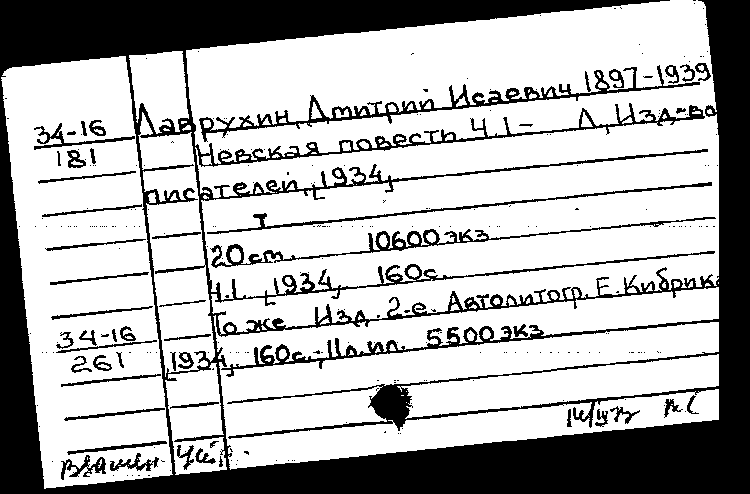 34-16 Лаврухин, Дмитрий Исаевич, 1897-1939
181 Невская повесть Ч.1- Л, Изд-во
писателей, [1934]
т
20 см. 10600 экз
Ч.1. [1934], 160с.
34-16 То же Изд. 2-е. Автолитогр. Е. Кибрика
261 [1934], 160с.; 11л.ил. 5500 экз
взамен